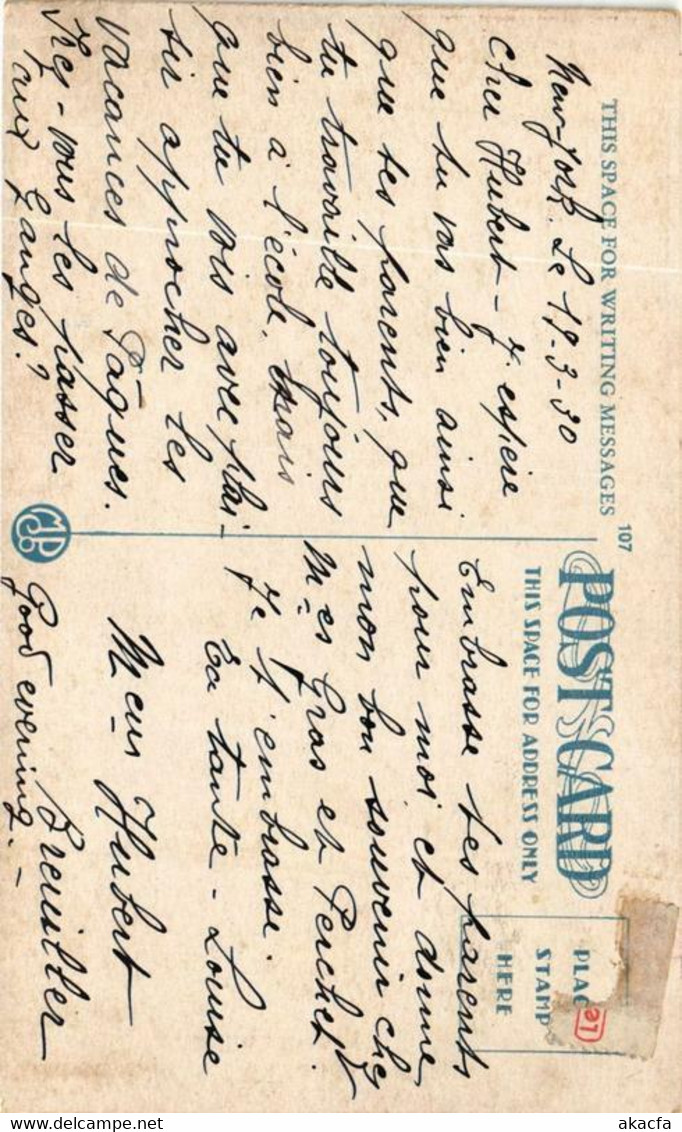 THIS SPACE FOR WRITING MESSAGES
New-York. Le 19-3-30
Cher Hubert - J'espère
que tu vas bien ainsi
que tes parents, que
tu travaille toujours
bien à l'école, mais
que tu vois avec plai-
sir approcher les
vacances de Pâques.
Irez-vous les passer
aux Granges?
107
POST CARD
THIS SPACE FOR ADDRESS ONLY
PLAC
STAMP
HERE
Embrasse tes parents
pour moi et donne
mon bon souvenir chez
Mes Gros et Perchet.
Je t'embrasse.
Ta tante - Louise
Meur Hubert
Good evening. -
www.delcampe.net
akacfa